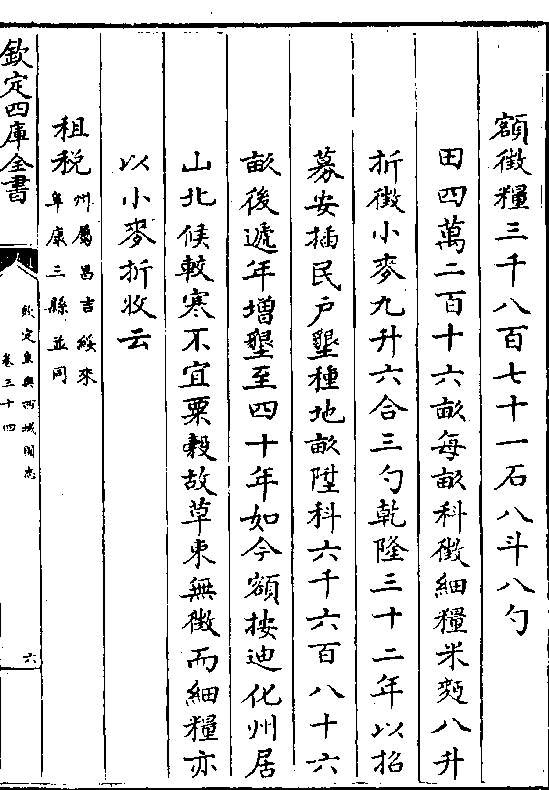 額徴糧三千八百七十一石八斗八勺
田四萬二百十六畝每畝科徴細糧米麪八升
折徴小麥九升六合三勺乾隆三十二年以招
募安插民戶墾種地畝陞科六千六百八十六
畝後遞年增墾至四十年如今額按迪化州居
山北候較寒不宜粟穀故草束無徴而細糧亦
以小麥折收云
租税州屬昌吉綏來
阜康三縣並同
欽定四庫全書
欽定皇輿西域圖志
卷三十四
六